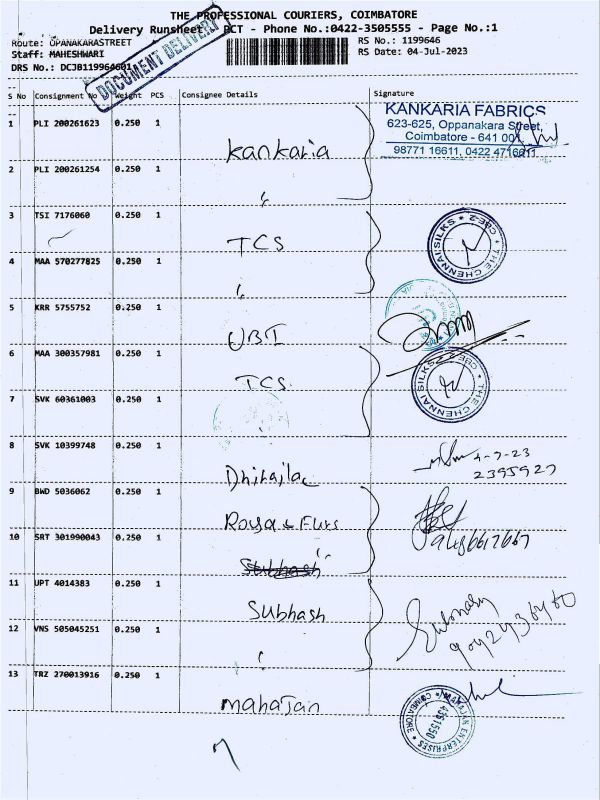 THE PROFESSIONAL COURIERS, COIMBATORE
Delivery Runsheet PCT - Phone No.:0422-3505555 - Page No.:1
Route: OPANAKARASTREET
RS No.: 1199646
Staff: MAHESHWARI
RS Date: 04-Jul-2023
DRS No.: DCJB119964601
DOCUMENT DELIVERY
S No Consignment No Weight PCS Consignee Details Signature
KANKARIA FABRICS
623-625, Oppanakara Street,
Coimbatore - 641 001
98771 16611, 0422 4716611
1 PLI 200261623 0.250 1 Kankaria
2 PLI 200261254 0.250 1 "
3 TSI 7176060 0.250 1 TCS
THE CHENNAI SILKS * CBE-2 *
4 MAA 570277825 0.250 1 "
5 KRR 5755752 0.250 1 UBI
6 MAA 300357981 0.250 1 TCS
THE CHENNAI SILKS * CBE-2 *
7 SVK 60361003 0.250 1 "
8 SVK 10399748 0.250 1 Dhirajlal
4-7-23
2395927
9 BWD 5036062 0.250 1
10 SRT 301990043 0.250 1 "
11 UPT 4014383 0.250 1 Subhash
12 VNS 505045251 0.250 1 "
13 TRZ 270013916 0.250 1 mahajan
MAHAJAN ENTERPRISES * COIMBATORE *
4361550